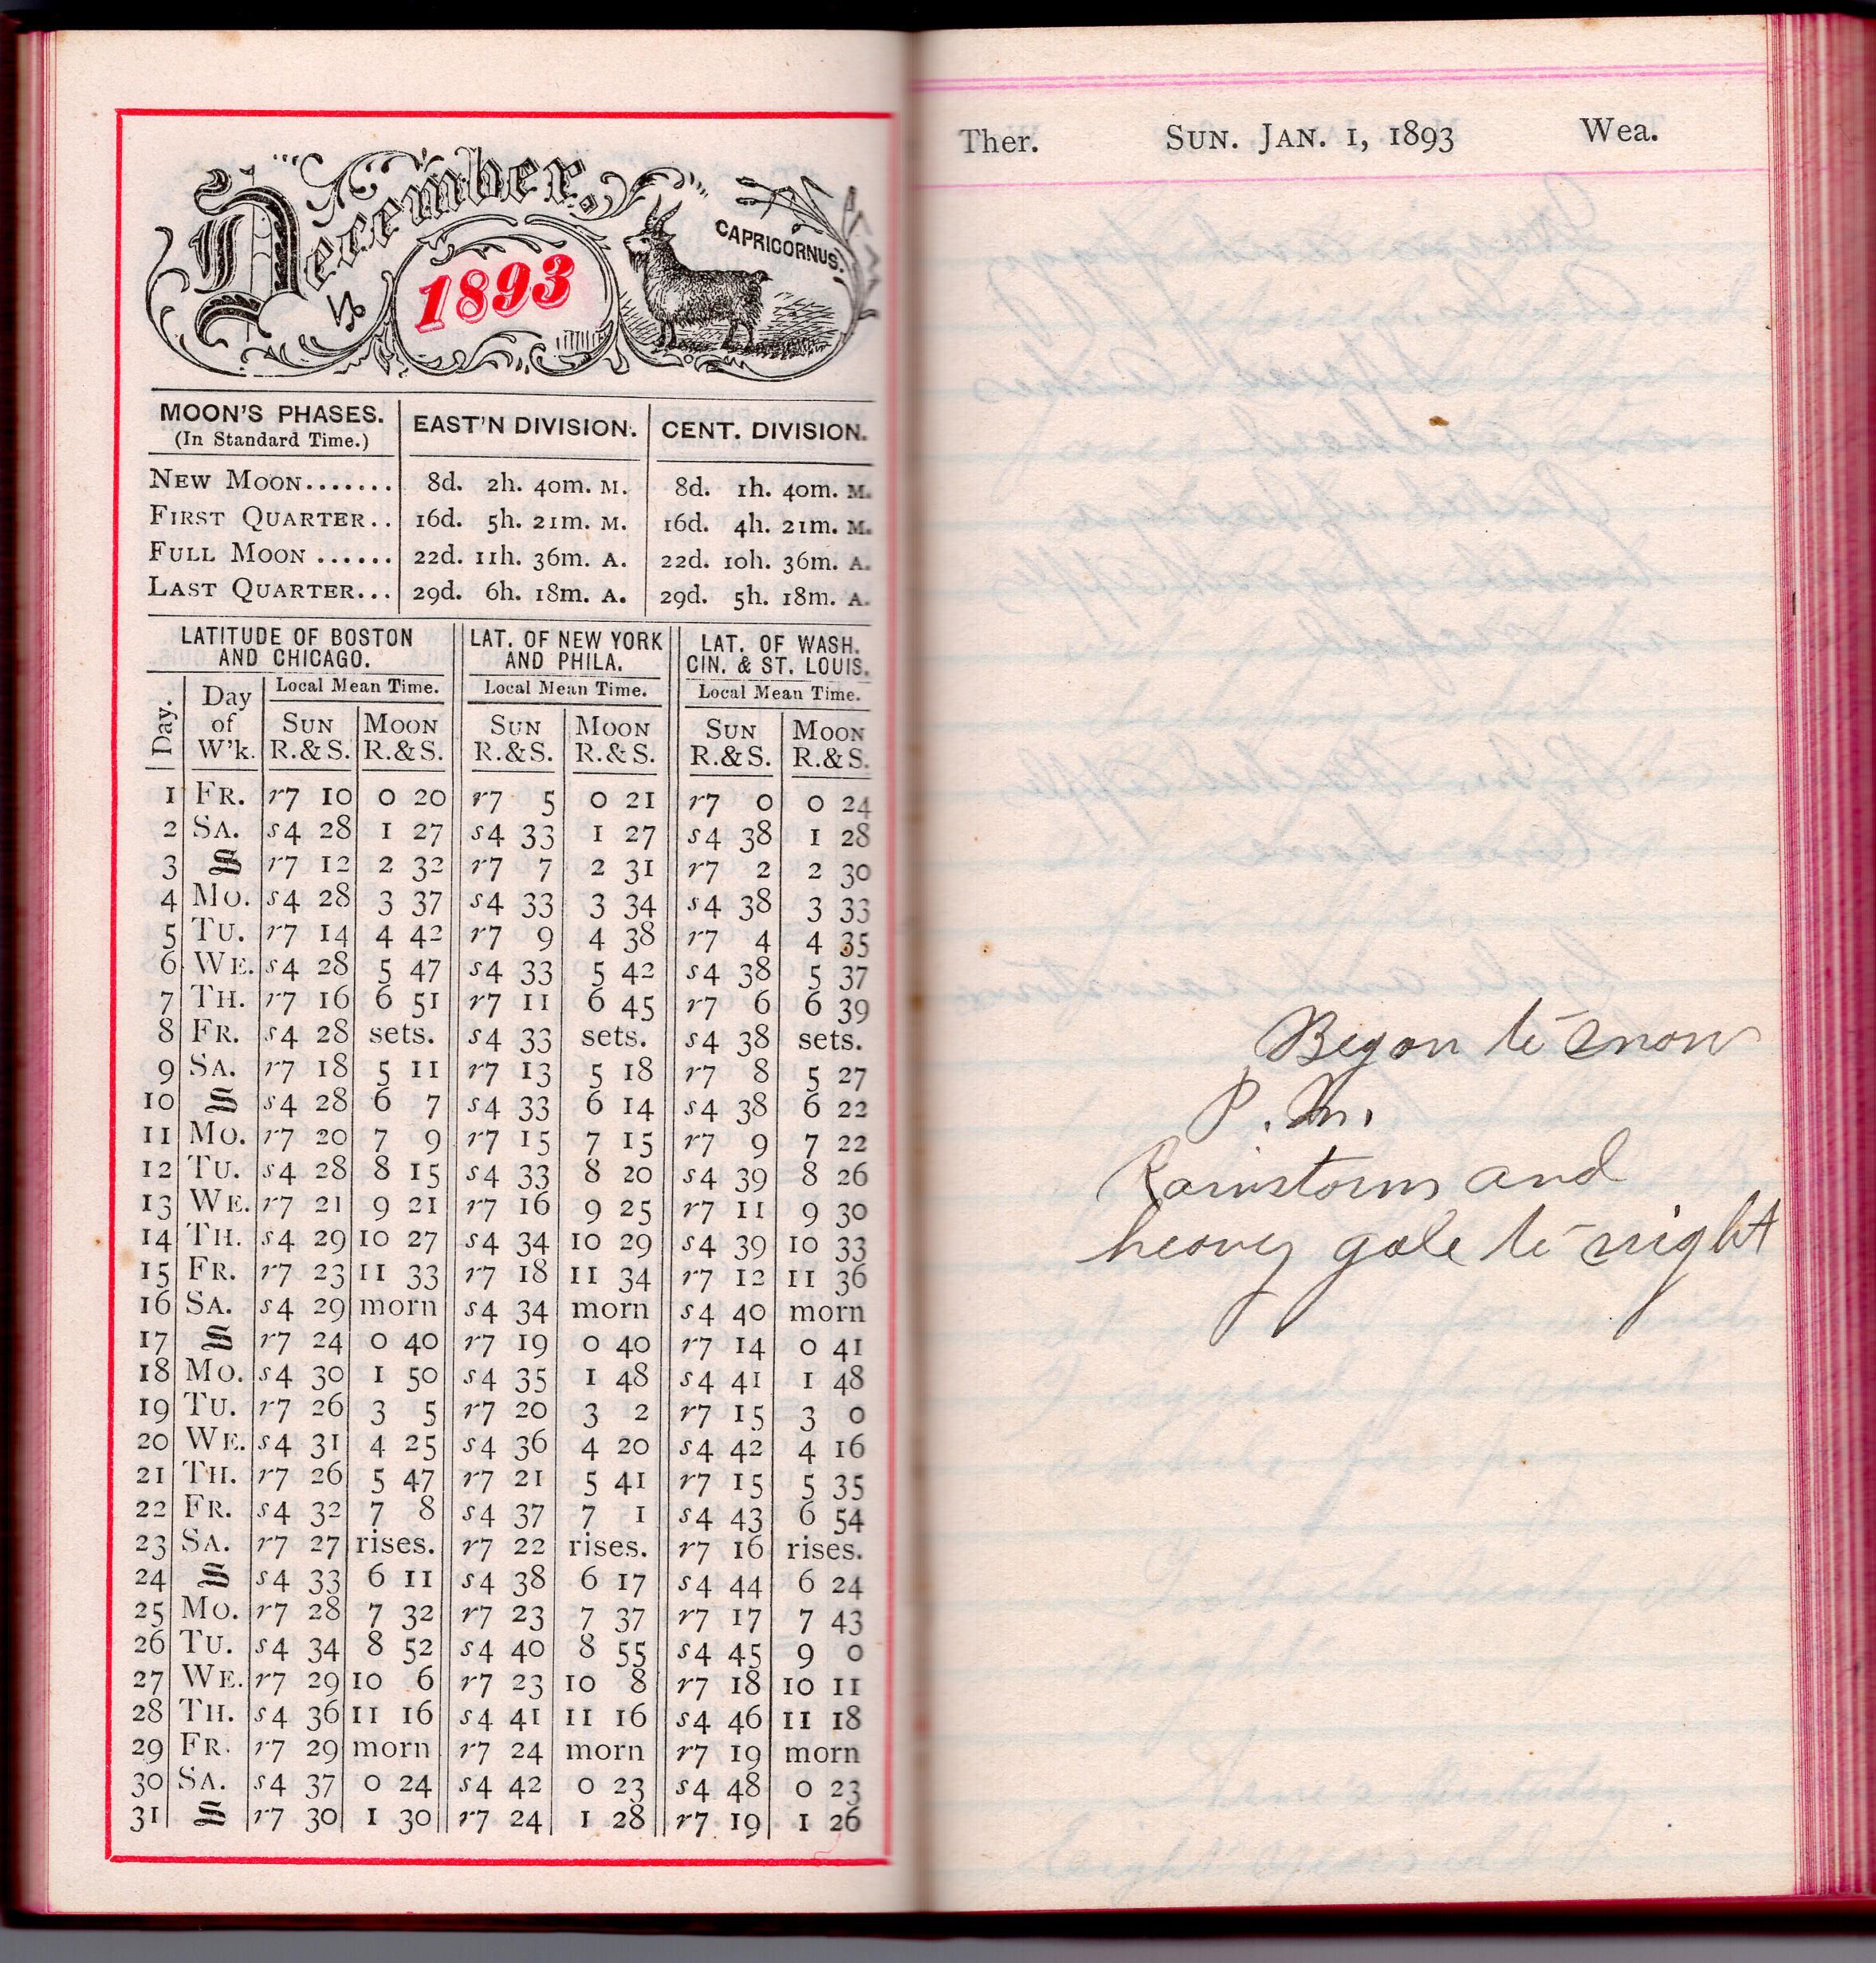 December.
1893
CAPRICORNUS.
MOON'S PHASES. (In Standard Time.) EAST'N DIVISION. CENT. DIVISION.
NEW MOON....... 8d. 2h. 40m. M. 8d. 1h. 40m. M.
FIRST QUARTER.. 16d. 5h. 21m. M. 16d. 4h. 21m. M.
FULL MOON ...... 22d. 11h. 36m. A. 22d. 10h. 36m. A.
LAST QUARTER... 29d. 6h. 18m. A. 29d. 5h. 18m. A.
LATITUDE OF BOSTON AND CHICAGO. LAT. OF NEW YORK AND PHILA. LAT. OF WASH. CIN. & ST. LOUIS.
Local Mean Time. Local Mean Time. Local Mean Time.
Day. Day of W'k. SUN R.&S. MOON R.&S. SUN R.&S. MOON R.&S. SUN R.&S. MOON R.&S.
1 FR. r7 10 0 20 r7 5 0 21 r7 0 0 24
2 SA. s4 28 1 27 s4 33 1 27 s4 38 1 28
3 S r7 12 2 32 r7 7 2 31 r7 2 2 30
4 MO. s4 28 3 37 s4 33 3 34 s4 38 3 33
5 TU. r7 14 4 42 r7 9 4 38 r7 4 4 35
6 WE. s4 28 5 47 s4 33 5 42 s4 38 5 37
7 TH. r7 16 6 51 r7 11 6 45 r7 6 6 39
8 FR. s4 28 sets. s4 33 sets. s4 38 sets.
9 SA. r7 18 5 11 r7 13 5 18 r7 8 5 27
10 S s4 28 6 7 s4 33 6 14 s4 38 6 22
11 MO. r7 20 7 9 r7 15 7 15 r7 9 7 22
12 TU. s4 28 8 15 s4 33 8 20 s4 39 8 26
13 WE. r7 21 9 21 r7 16 9 25 r7 11 9 30
14 TH. s4 29 10 27 s4 34 10 29 s4 39 10 33
15 FR. r7 23 11 33 r7 18 11 34 r7 12 11 36
16 SA. s4 29 morn s4 34 morn s4 40 morn
17 S r7 24 0 40 r7 19 0 40 r7 14 0 41
18 MO. s4 30 1 50 s4 35 1 48 s4 41 1 48
19 TU. r7 26 3 5 r7 20 3 2 r7 15 3 0
20 WE. s4 31 4 25 s4 36 4 20 s4 42 4 16
21 TH. r7 26 5 47 r7 21 5 41 r7 15 5 35
22 FR. s4 32 7 8 s4 37 7 1 s4 43 6 54
23 SA. r7 27 rises. r7 22 rises. r7 16 rises.
24 S s4 33 6 11 s4 38 6 17 s4 44 6 24
25 MO. r7 28 7 32 r7 23 7 37 r7 17 7 43
26 TU. s4 34 8 52 s4 40 8 55 s4 45 9 0
27 WE. r7 29 10 6 r7 23 10 8 r7 18 10 11
28 TH. s4 36 11 16 s4 41 11 16 s4 46 11 18
29 FR. r7 29 morn r7 24 morn r7 19 morn
30 SA. s4 37 0 24 s4 42 0 23 s4 48 0 23
31 S r7 30 1 30 r7 24 1 28 r7 19 1 26
Ther. SUN. JAN. 1, 1893 Wea.
Began to snow
P.M.
Rainstorm and
heavy gale to-night